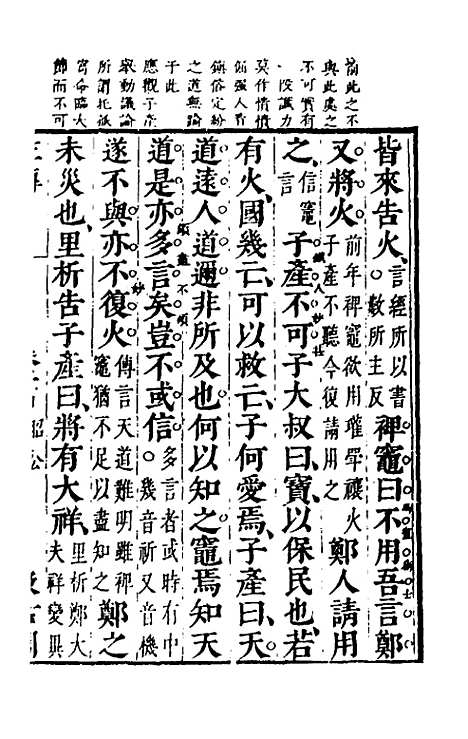 前此之不
與此處之
不可實有
一段識力
莫作憒憒
倔强人看
鎮俗定紛
之道無踰
于此
應觀子產
舉動議論
所謂托孤
寄命臨大
節而不可
皆來告火。言經所以書數所主反裨竈曰不用吾言鄭
又將火前年裨竈欲用瓘斝禳火子產不聽今復請用之鄭人請用
之信竈言子產不可子大叔曰寶以保民也若
有火國幾亡可以救亡子何愛焉子產曰天
道遠人道邇非所及也何以知之竈焉知天
道是亦多言矣豈不或信多言者或時有中。幾音祈又音機
遂不與亦不復火傳言天道難明雖裨竈猶不足以盡知之鄭之
未災也里析告子產曰將有大祥里析鄭大夫祥變異